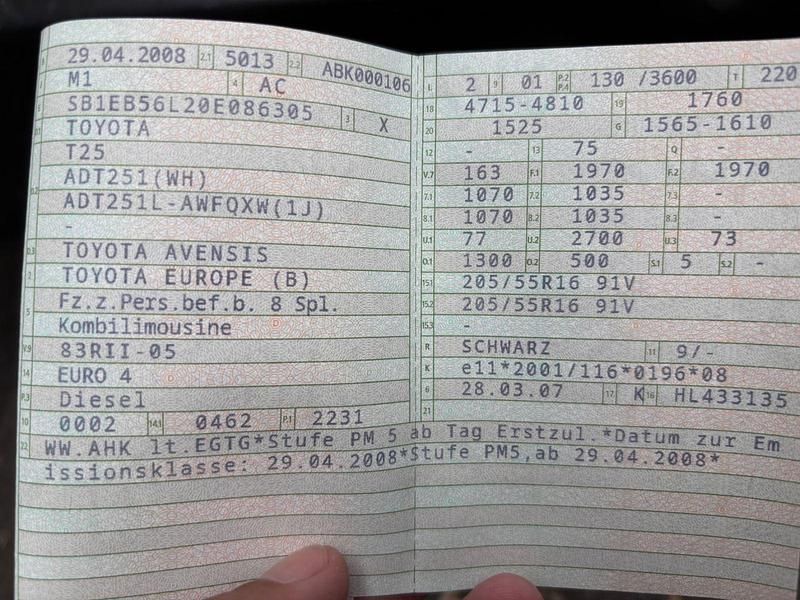 29.04.2008 2.1 5013 2.2 ABK000106
M1 4 AC
SB1EB56L20E086305 3 X
TOYOTA
T25
ADT251(WH)
ADT251L-AWFQXW(1J)
-
TOYOTA AVENSIS
TOYOTA EUROPE (B)
Fz.z.Pers.bef.b. 8 Spl.
Kombilimousine
V.9 83RII-05
14 EURO 4
P.3 Diesel
10 0002 14.1 0462 P.1 2231
L 2 9 01 P.2 P.4 130 /3600 T 220
18 4715-4810 19 1760
20 1525 G 1565-1610
12 - 13 75 Q -
V.7 163 F.1 1970 F.2 1970
7.1 1070 7.2 1035 7.3 -
8.1 1070 8.2 1035 8.3 -
U.1 77 U.2 2700 U.3 73
O.1 1300 O.2 500 S.1 5 S.2 -
15.1 205/55R16 91V
15.2 205/55R16 91V
15.3 -
R SCHWARZ 11 9/-
K e11*2001/116*0196*08
6 28.03.07 17 K 16 HL433135
21
22 WW.AHK lt.EGTG*Stufe PM 5 ab Tag Erstzul.*Datum zur Em
issionsklasse: 29.04.2008*Stufe PM5,ab 29.04.2008*